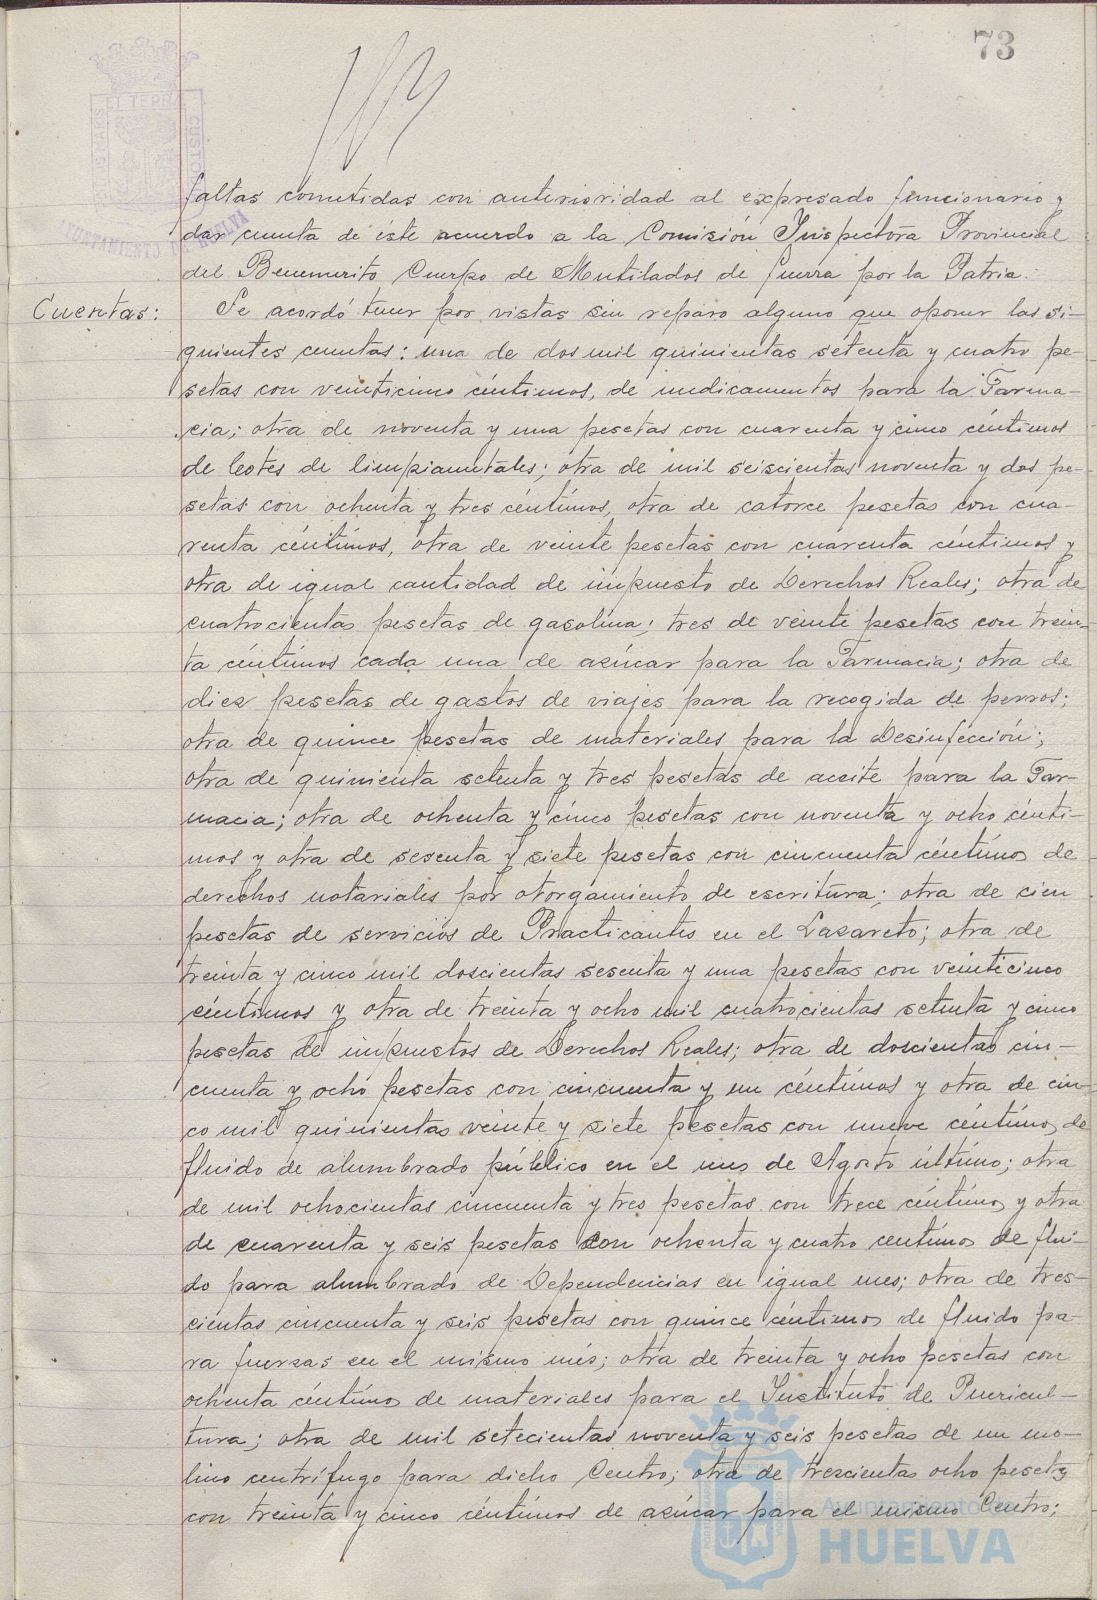 73
faltas cometidas con anterioridad al expresado funcionario y
dar cuenta de éste acuerdo a la Comisión Inspectora Provincial
del Benemerito Cuerpo de Mutilados de Guerra por la Patria.
Cuentas:
Se acordó tener por vistas sin reparo alguno que oponer las si-
guientes cuentas: una de dos mil quinientas setenta y cuatro pe-
setas con veinticinco céntimos, de medicamentos para la Farma-
cia; otra de noventa y una pesetas con cuarenta y cinco céntimos
de botes de limpiametales; otra de mil seiscientas noventa y dos pe-
setas con ochenta y tres céntimos, otra de catorce pesetas con cua-
renta céntimos, otra de veinte pesetas con cuarenta céntimos y
otra de igual cantidad de impuesto de Derechos Reales; otra de
cuatrocientas pesetas de gasolina; tres de veinte pesetas con trein-
ta céntimos cada una de azúcar para la Farmacia; otra de
diez pesetas de gastos de viajes para la recogida de perros;
otra de quince pesetas de materiales para la Desinfección;
otra de quinienta setenta y tres pesetas de aceite para la Far-
macia; otra de ochenta y cinco pesetas con noventa y ocho cénti-
mos y otra de sesenta y siete pesetas con cincuenta céntimos de
derechos notariales por otorgamiento de escritura; otra de cien
pesetas de servicios de Practicantes en el Lazareto; otra de
treinta y cinco mil doscientas sesenta y una pesetas con veinticinco
céntimos y otra de treinta y ocho mil cuatrocientas setenta y cinco
pesetas de impuestos de Derechos Reales; otra de doscientas cin-
cuenta y ocho pesetas con cincuenta y un céntimos y otra de cin-
co mil quinientas veinte y siete pesetas con nueve céntimos de
fluido de alumbrado público en el mes de Agosto último; otra
de mil ochocientas cincuenta y tres pesetas con trece céntimos y otra
de cuarenta y seis pesetas con ochenta y cuatro centimos de flui-
do para alumbrado de Dependencias en igual mes; otra de tres-
cientas cincuenta y seis pesetas con quince céntimos de fluido pa-
ra fuerzas en el mismo més; otra de treinta y ocho pesetas con
ochenta céntimos de materiales para el Instituto de Puericul-
tura; otra de mil setecientas noventa y seis pesetas de un mo-
lino centrífugo para dicho Centro; otra de trescientas ocho pesetas
con treinta y cinco céntimos de azúcar para el mismo Centro;
Ayuntamiento de
HUELVA